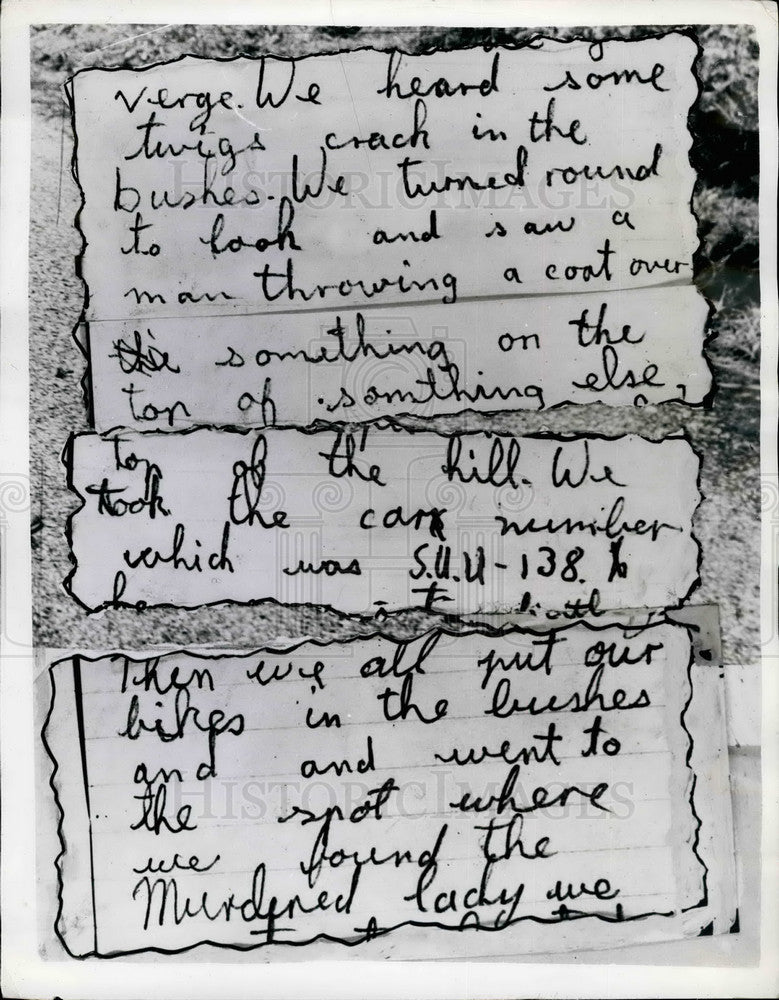 verge. We heard some
twigs crack in the
bushes. We turned round
to look and saw a
man throwing a coat over
something on the
top of somthing else,
top of the hill. We
took the car number
which was S.U.U-138.
Then we all put our
bikes in the bushes
and and went to
the spot where
we found the
Murdered lady we
HISTORICIMAGES
HISTORICIMAGES